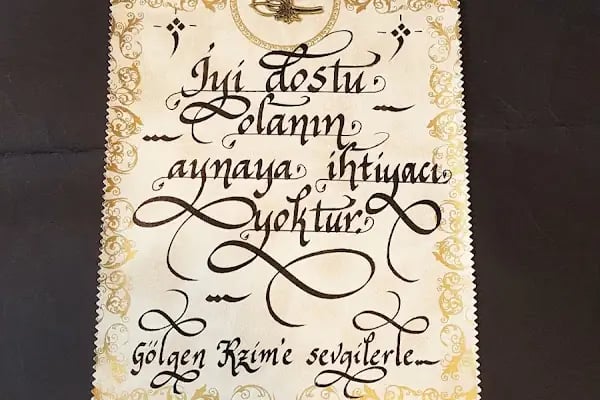 İyi dostu
olanın
aynaya ihtiyacı
yoktur.
Gölgen Rzim'e sevgilerle...